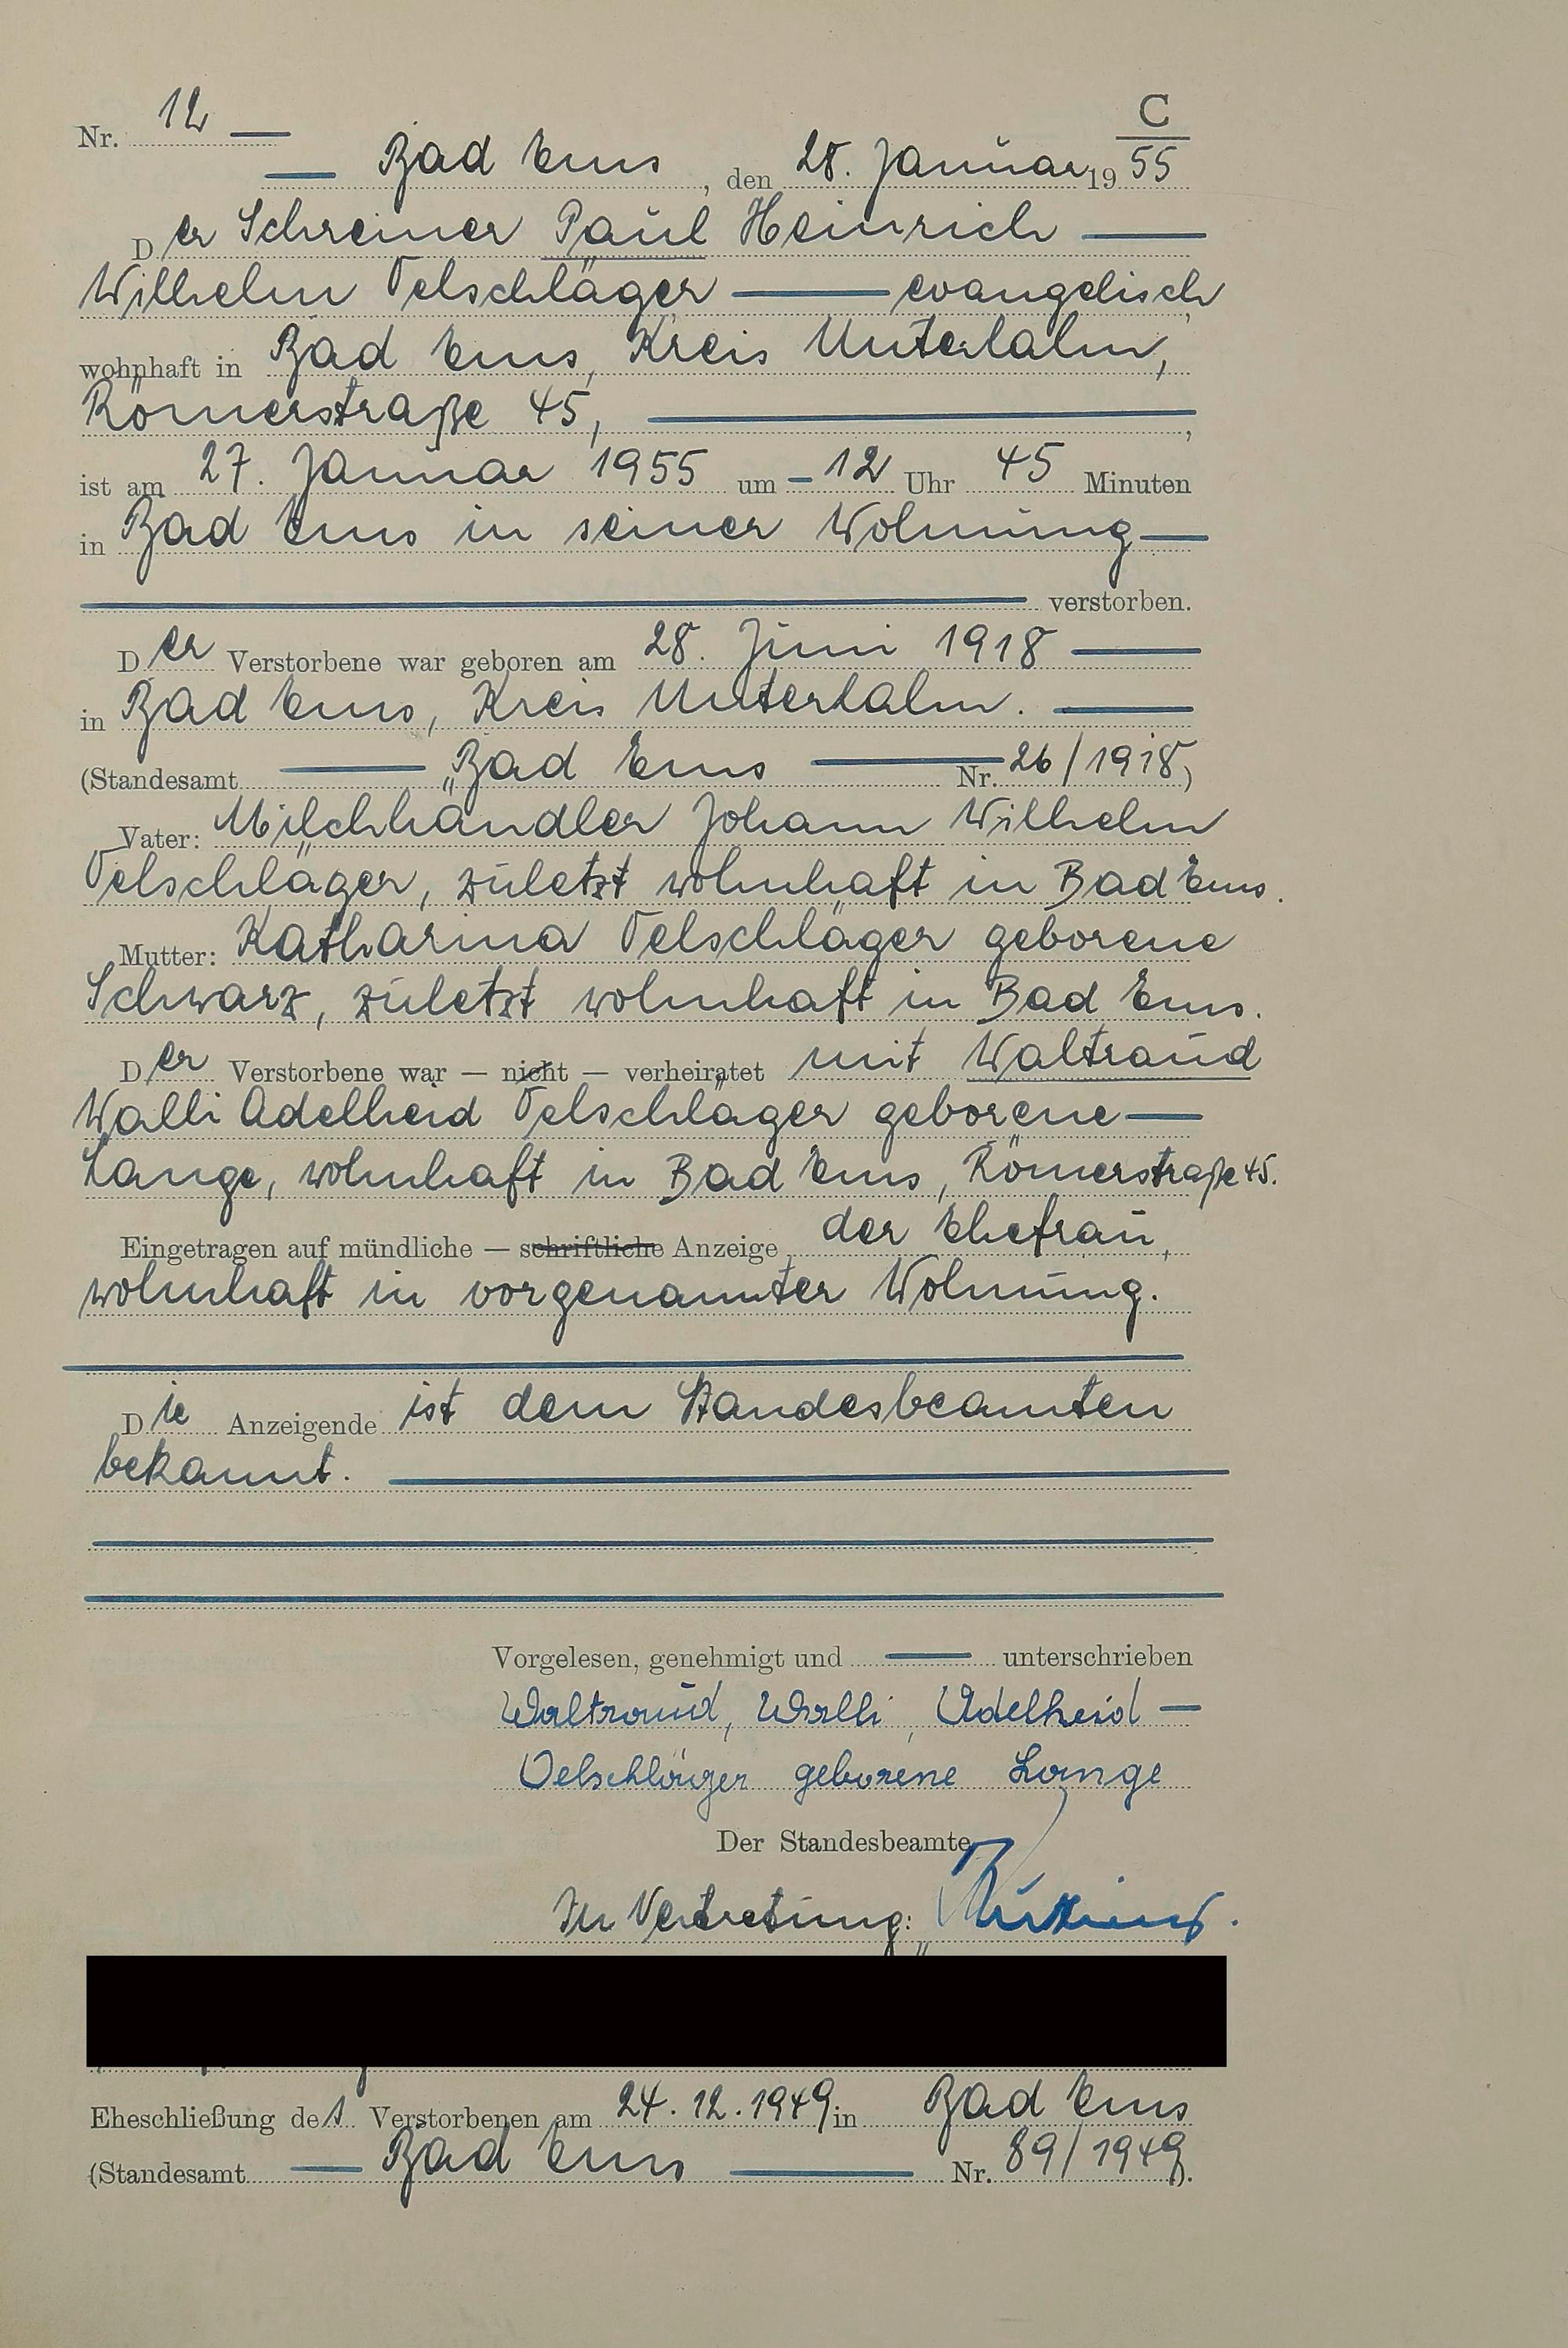 C
Nr. 12
Bad Ems, den 28. Januar 1955
Der Schreiner Paul Heinrich
Wilhelm Oelschläger evangelisch,
wohnhaft in Bad Ems, Kreis Unterlahn,
Römerstraße 45,
ist am 27. Januar 1955 um 12 Uhr 45 Minuten
in Bad Ems in seiner Wohnung
verstorben.
Der Verstorbene war geboren am 28. Juni 1918
in Bad Ems, Kreis Unterlahn.
(Standesamt Bad Ems Nr. 26/1918)
Vater: Milchhändler Johann Wilhelm
Oelschläger, zuletzt wohnhaft in Bad Ems.
Mutter: Katharina Oelschläger geborene
Schwarz, zuletzt wohnhaft in Bad Ems.
Der Verstorbene war — nicht — verheiratet mit Waltraud
Walli Adelheid Oelschläger geborene
Lange, wohnhaft in Bad Ems, Römerstraße 45.
Eingetragen auf mündliche — schriftliche Anzeige der Ehefrau,
wohnhaft in vorgenannter Wohnung.
Die Anzeigende ist dem Standesbeamten
bekannt.
Vorgelesen, genehmigt und unterschrieben
Waltraud, Walli, Adelheid
Oelschläger geborene Lange
Der Standesbeamte
In Vertretung:
Eheschließung des Verstorbenen am 24.12.1949 in Bad Ems
(Standesamt Bad Ems Nr. 89/1949).